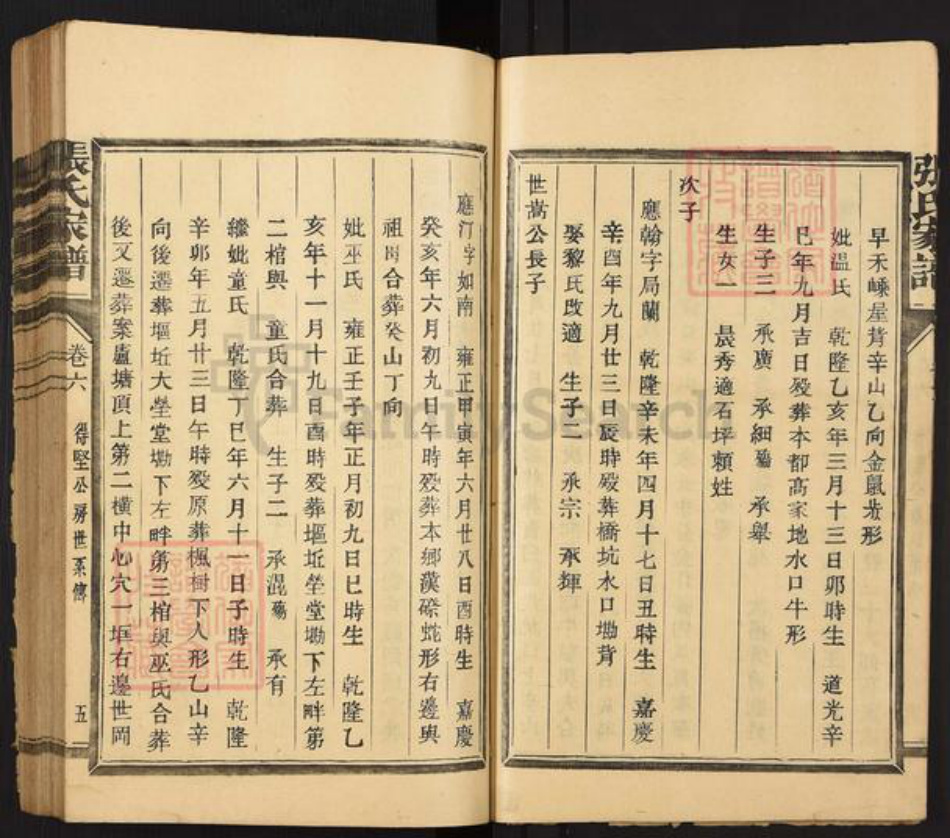 張氏家譜
早禾㟙屋背辛山乙向金鼠形
妣溫氏 乾隆乙亥年三月十三日卯時生 道光辛
巳年九月吉日殁葬本都高家地水口牛形
生子三 承廣 承細殤 承舉
生女一 晨秀適石坪賴姓
次子
應翰字局蘭 乾隆辛未年四月十七日丑時生 嘉慶
辛酉年九月廿三日辰時殁葬橋坑水口坳背
娶黎氏改適 生子二 承宗 承輝
世嵩公長子
應汀字如南 雍正甲寅年六月廿八日酉時生 嘉慶
癸亥年六月初九日午時殁葬本鄉漠磜蛇形右邊與
祖岡合葬癸山丁向
妣巫氏 雍正壬子年正月初九日巳時生 乾隆乙
亥年十一月十九日酉時殁葬堀坵塋堂墈下左畔第
二棺與 童氏合葬 生子二 承混殤 承有
繼妣童氏 乾隆丁巳年六月十一日子時生 乾隆
辛卯年五月廿三日午時殁原葬楓樹下人形乙山辛
向後遷葬堀坵大塋堂墈下左畔第三棺與巫氏合葬
後又遷葬案廬塘頂上第二橫中心穴一堀右邊世岡
張氏家譜
卷六
得堅公房世系傳
五
FamilySearch